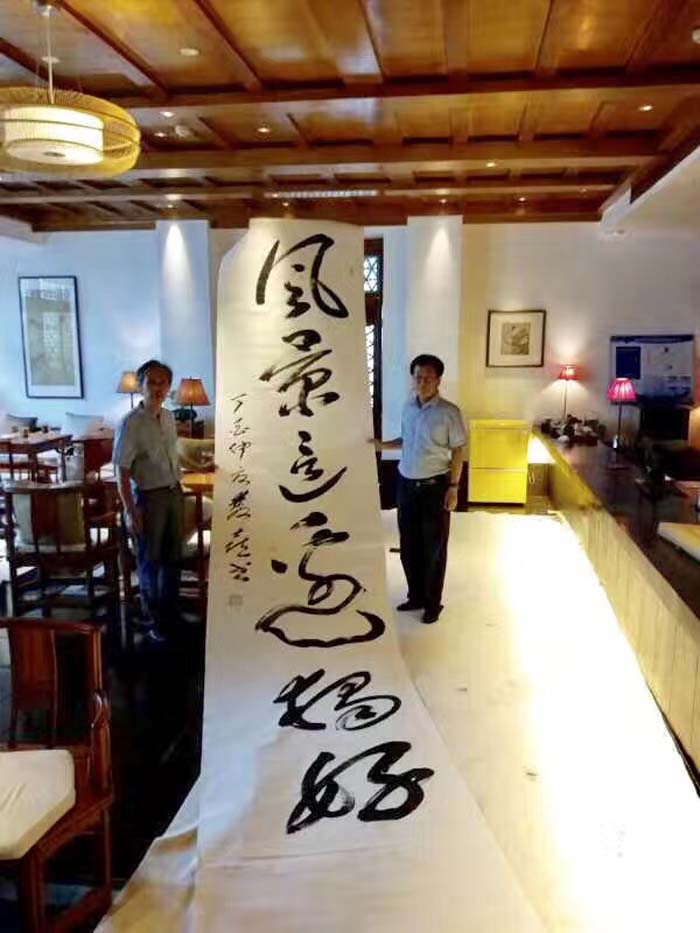 風景這邊獨好
丁酉仲夏